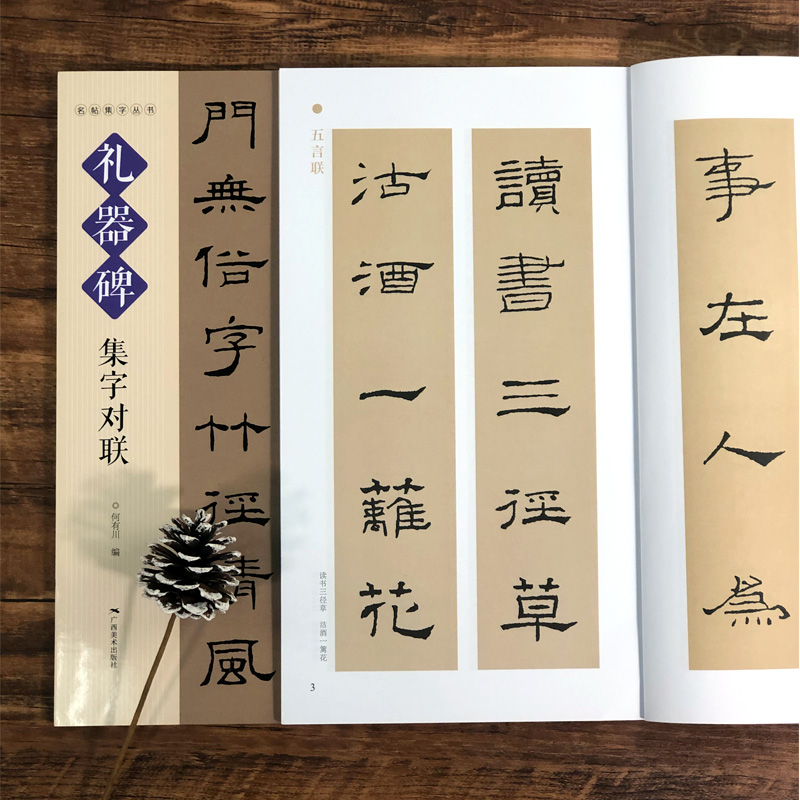 名帖集字丛书
礼器碑
集字对联
◎何有川 编
广西美术出版社
門無俗字竹徑清風
五言联
讀書三徑草
沽酒一籬花
读书三径草 沽酒一篱花
3
事在人為